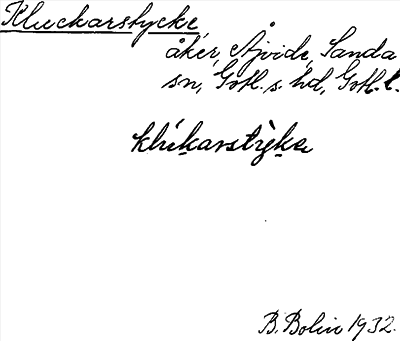 Kluckarstycke,
åker, Ajvide, Sanda
sn, Gotl. s. hd, Gotl. l.
klúkarstỳke
B. Bolin 1932.